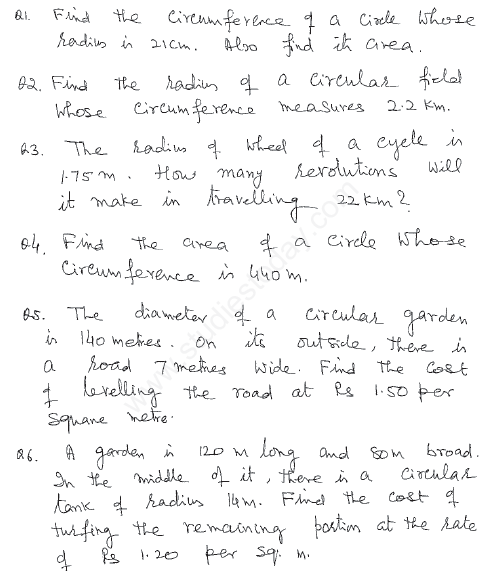 Q1. Find the circumference of a circle whose
radius is 21cm. Also find its area.
Q2. Find the radius of a circular field
whose circumference measures 2.2 km.
Q3. The radius of wheel of a cycle is
1.75 m. How many revolutions will
it make in travelling 22 km?
Q4. Find the area of a circle whose
circumference is 440 m.
Q5. The diameter of a circular garden
is 140 metres. On its outside, there is
a road 7 metres wide. Find the cost
of levelling the road at Rs 1.50 per
square metre.
Q6. A garden is 120 m long and 80m broad.
In the middle of it, there is a circular
tank of radius 14m. Find the cost of
turfing the remaining portion at the rate
of Rs 1.20 per sq. m.
www.studiestoday.com